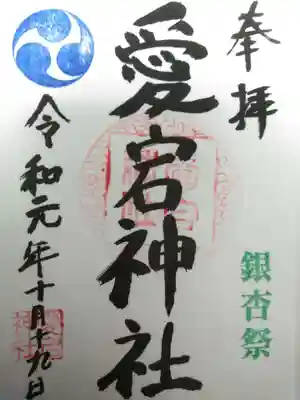 奉拝
銀杏祭
愛宕神社
令和元年十月十九日